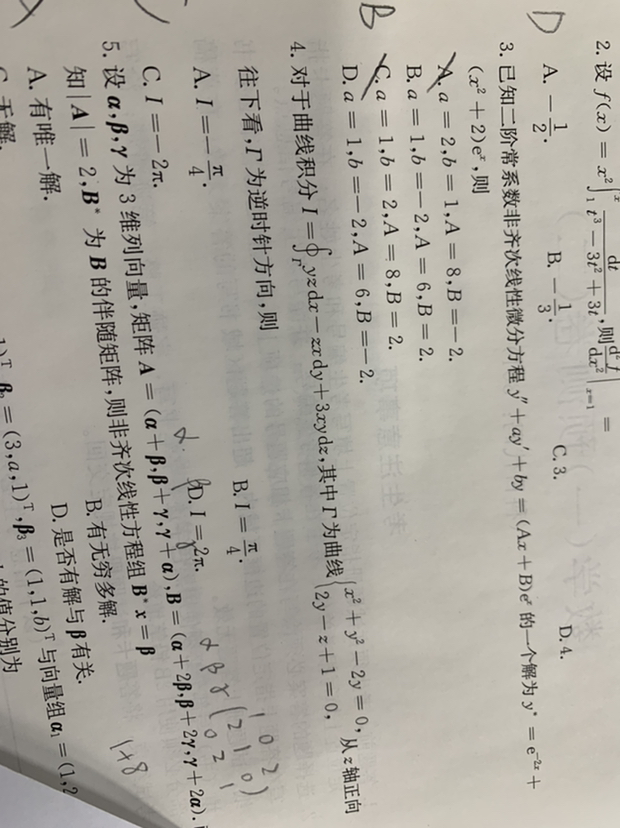 2. 设 f(x) = x² ∫₁ˣ dt / (t³ − 3t² + 3t), 则 d²f/dx² |ₓ₌₁ =
D
A. −1/2. B. −1/3. C. 3. D. 4.
3. 已知二阶常系数非齐次线性微分方程 y″ + ay′ + by = (Ax + B)eˣ 的一个解为 y* = e⁻²ˣ +
(x² + 2)eˣ, 则
A. a = 2, b = 1, A = 8, B = −2.
B. a = 1, b = −2, A = 6, B = 2.
C. a = 1, b = 2, A = 8, B = 2.
D. a = 1, b = −2, A = 6, B = −2.
B
4. 对于曲线积分 I = ∮_Γ yzdx − zxdy + 3xydz, 其中 Γ 为曲线 { x² + y² − 2y = 0, 2y − z + 1 = 0, 从 z 轴正向
往下看, Γ 为逆时针方向, 则
A. I = −π/4. B. I = π/4.
C. I = −2π. D. I = 2π.
5. 设 α, β, γ 为 3 维列向量, 矩阵 A = (α + β, β + γ, γ + α), B = (α + 2β, β + 2γ, γ + 2α).
知 |A| = 2, B* 为 B 的伴随矩阵, 则非齐次线性方程组 B*x = β
A. 有唯一解. B. 有无穷多解.
C. 无解. D. 是否有解与 β 有关.
α β γ
1 0 2
2 1 0
0 2 1
1+8
1)ᵀ, β₂ = (3, a, 1)ᵀ, β₃ = (1, 1, b)ᵀ 与向量组 α₁ = (1, 2
的值分别为